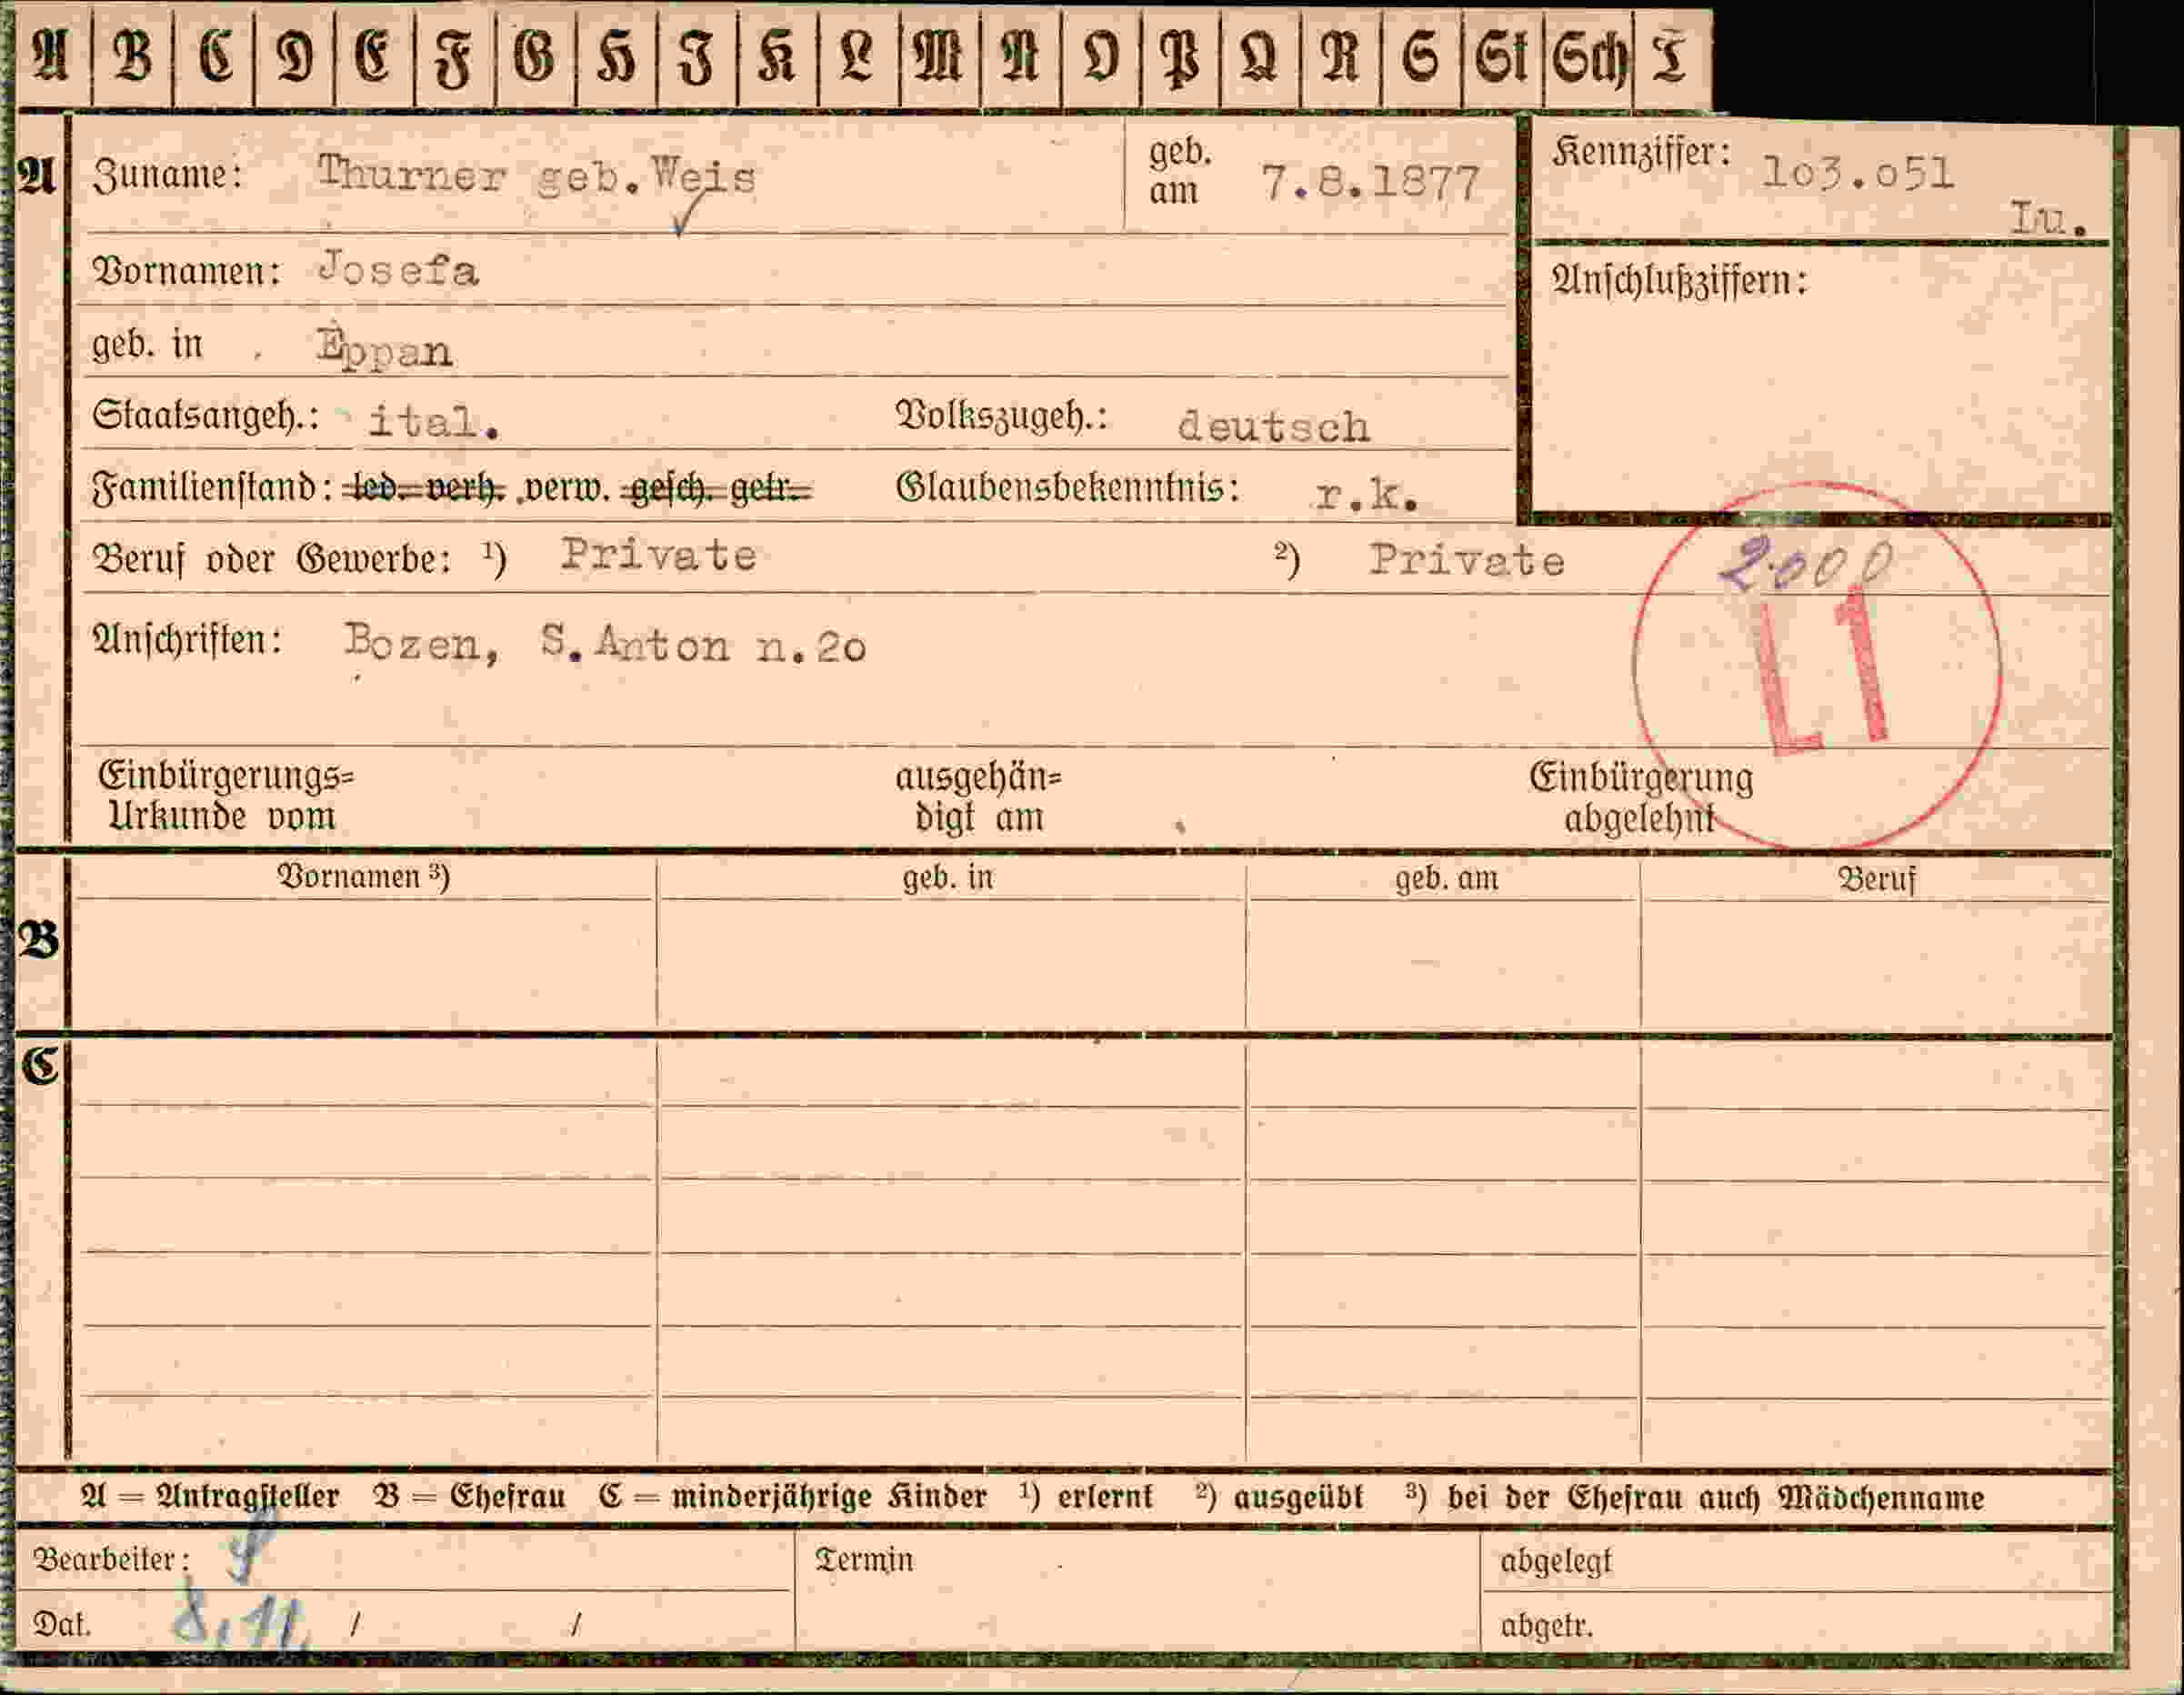 A B C D E F G H I K L M N O P Q R S St Sch T
A Zuname: Thurner geb. Weis geb. am 7.8.1877 Kennziffer: 1o3.o51
Iu.
Vornamen: Josefa Anschlußziffern:
geb. in Eppan
Staatsangeh.: ital. Volkszugeh.: deutsch
Familienstand: led. verh. verw. gesch. getr. Glaubensbekenntnis: r.k.
Beruf oder Gewerbe: ¹) Private ²) Private 2000
Anschriften: Bozen, S. Anton n.2o
L1
Einbürgerungs= ausgehän= Einbürgerung
Urkunde vom digt am abgelehnt
Vornamen ³) geb. in geb. am Beruf
B
C
A = Antragsteller B = Ehefrau C = minderjährige Kinder ¹) erlernt ²) ausgeübt ³) bei der Ehefrau auch Mädchenname
Bearbeiter: Termin abgelegt
Dat. 8.11. / / abgetr.